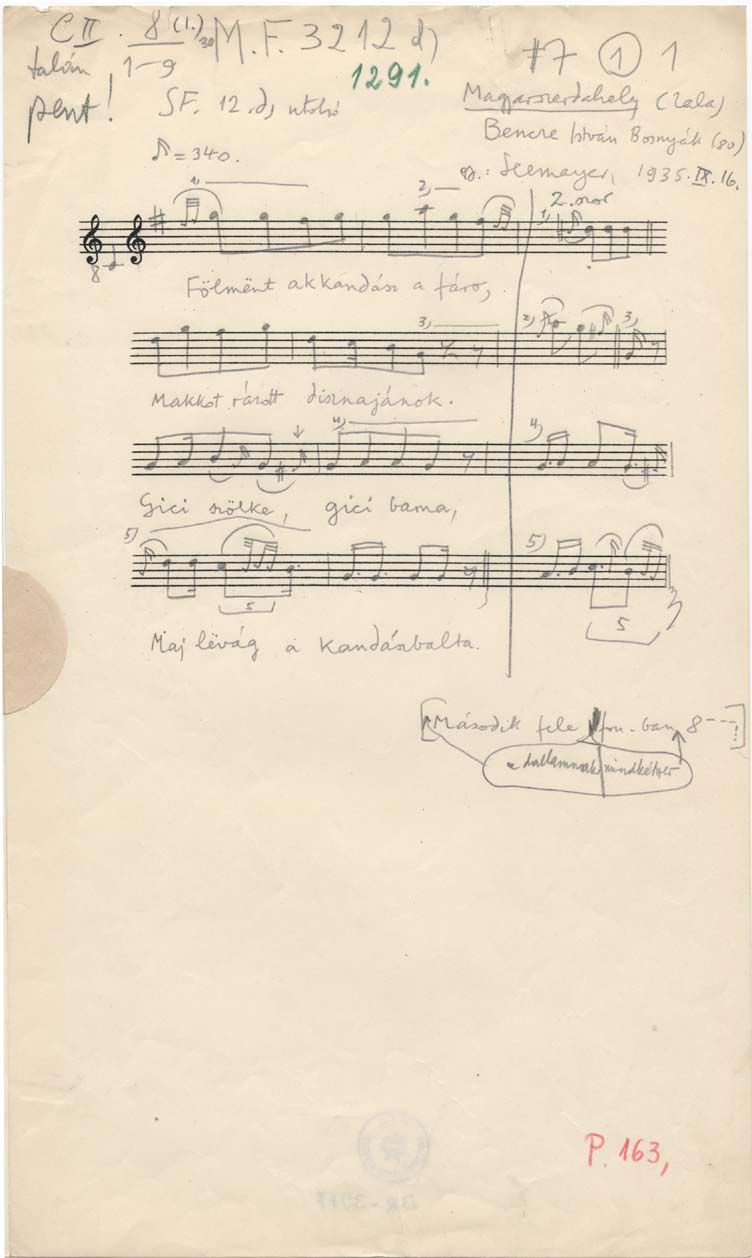 C II. 8 (1.) 30 M.F. 3212 d) #7 1 1
talán 1-9 1291.
pent! SF. 12. d, utolsó Magyarszerdahely (Zala)
Bencze István Bosnyák (80)
♪ = 340. gy.: Seemayer, 1935. IX. 16.
1, 2, 1, 2. szor
8
Fölmënt akkandász a fáro,
3, 2, 3,
Makkot rázott disznajánok.
4, 4,
Gici szőlke, gici barna,
5) 5)
5 5
Maj lëvág a kandászbalta.
[Második fele fon.-ban 8 ---]
a dallamnak mindkétszer
P. 163,